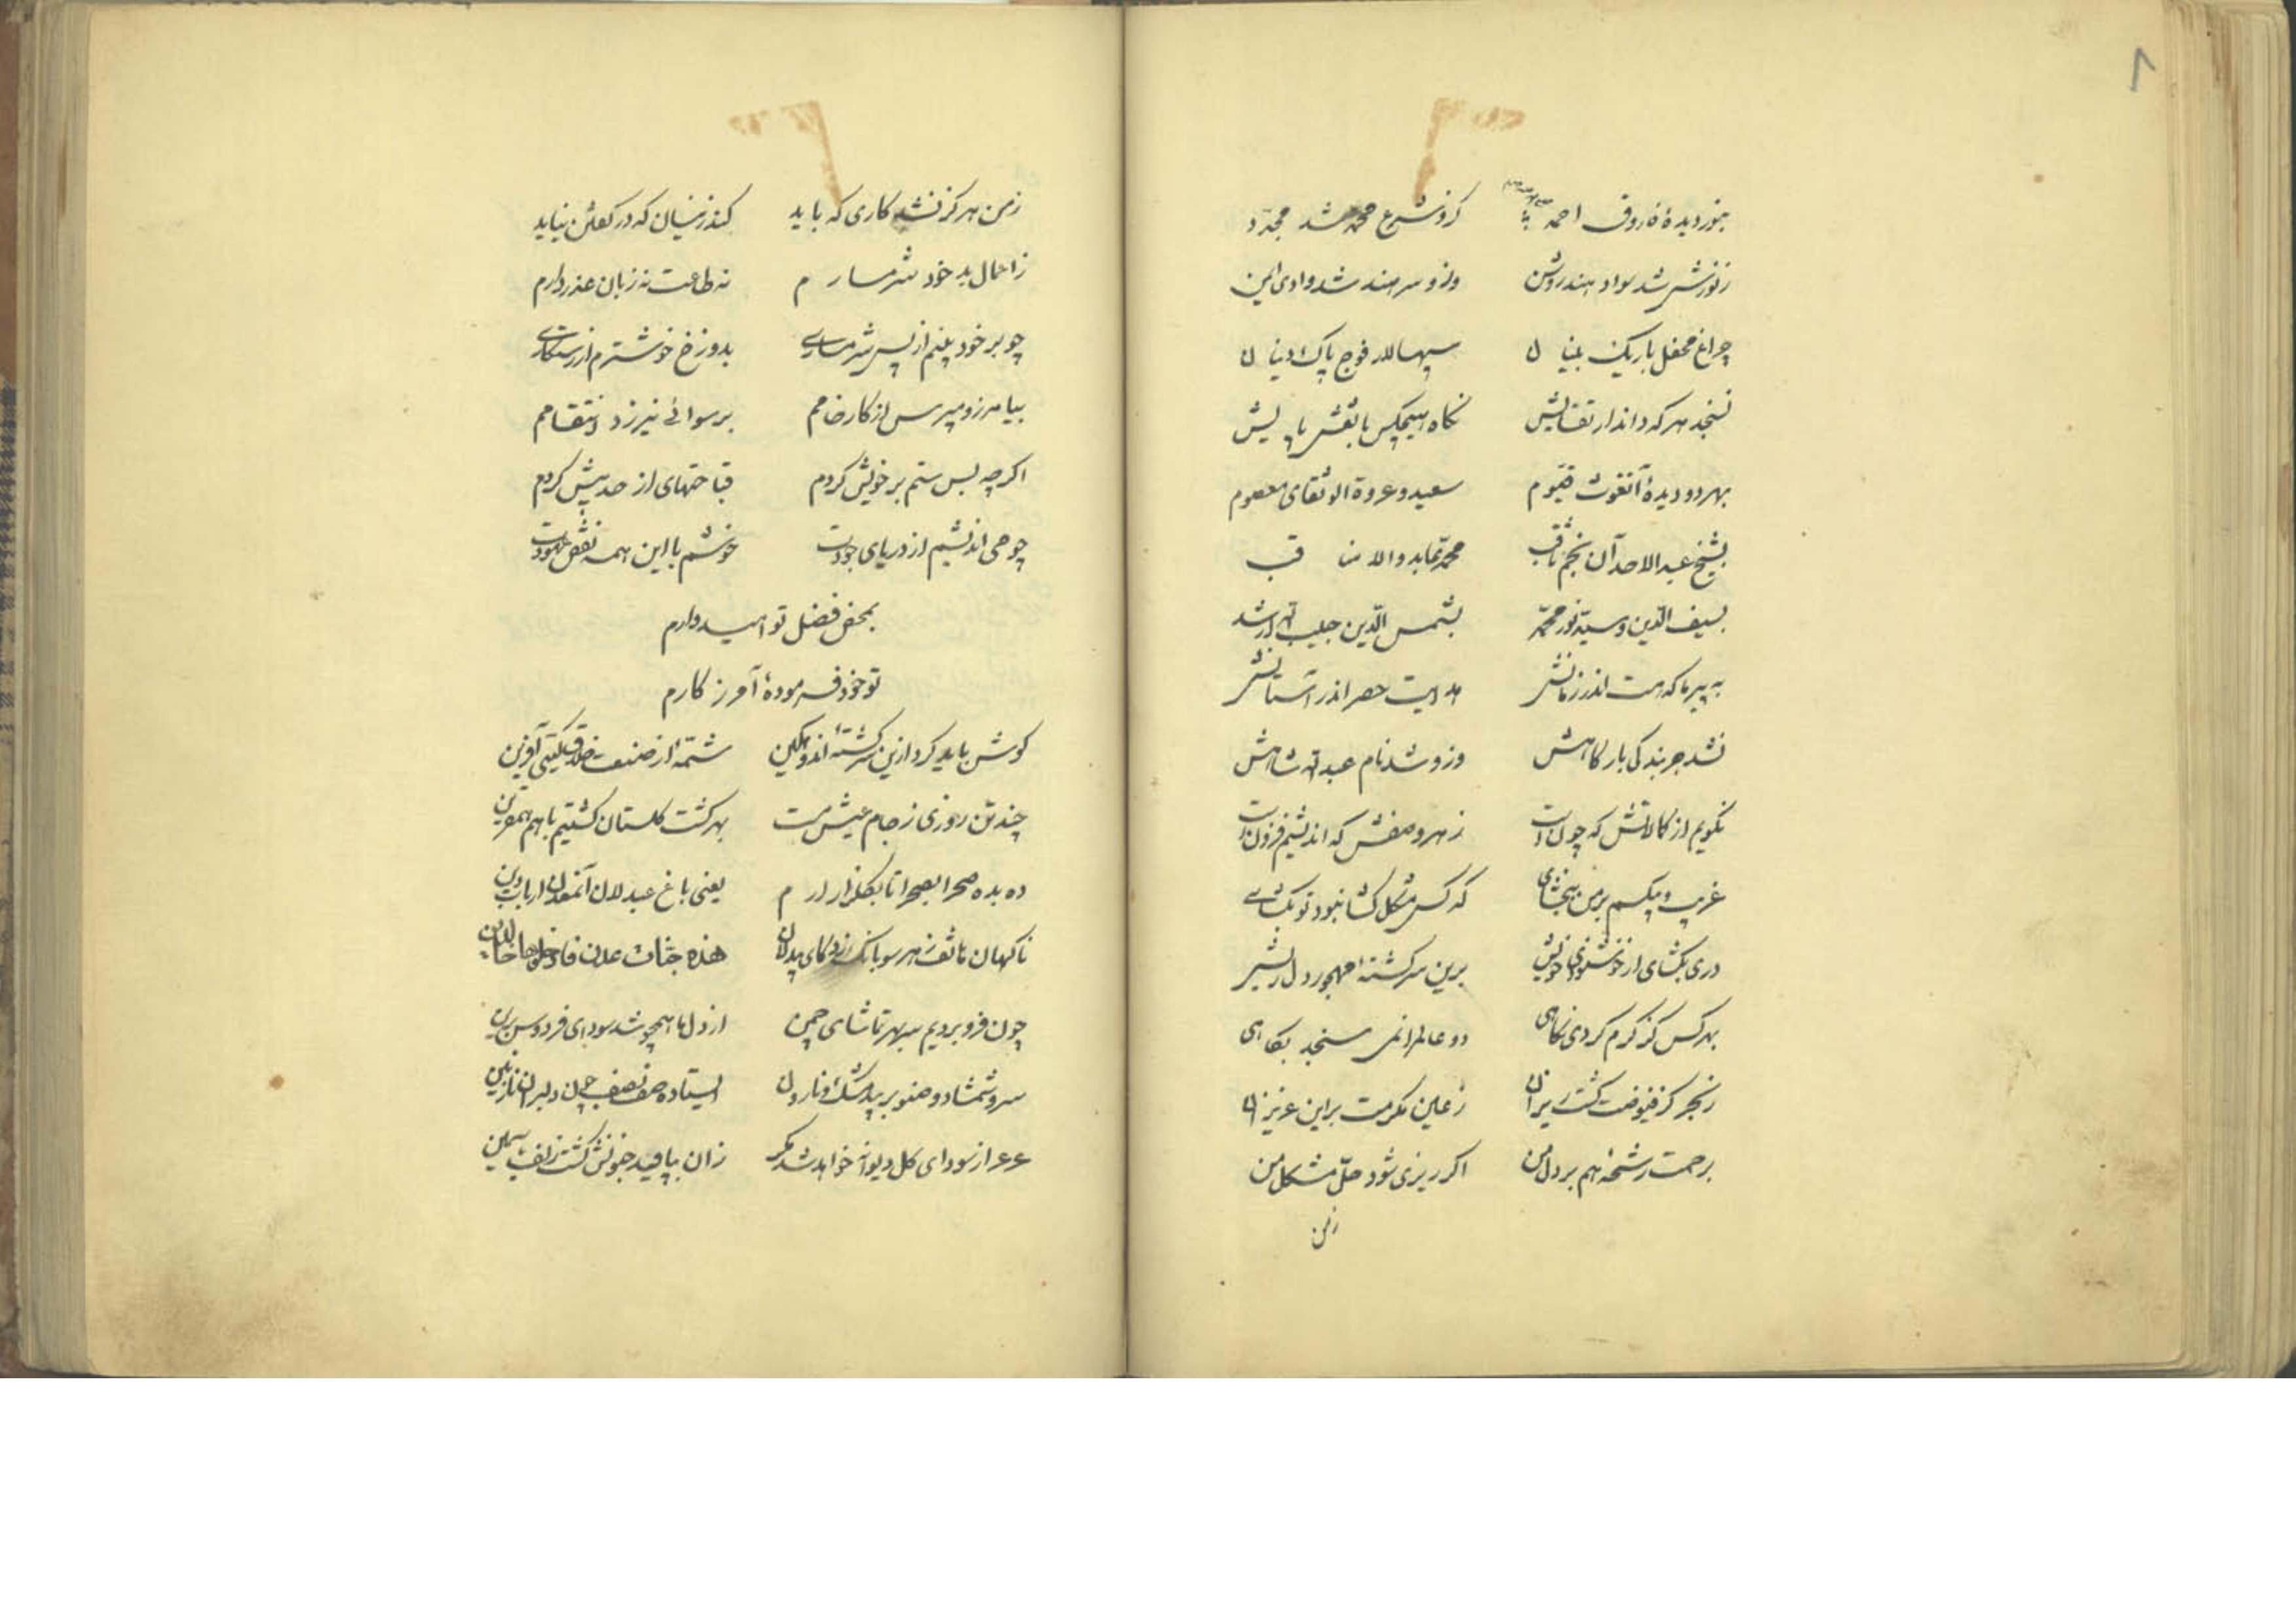 ۸
بنور دیدهٔ فاروق احمد کزو شرع محمد شد مجدّد
ز نورش شد سواد هند روشن وزو سرهند شد وادی ایمن
چراغ محفل باریک بینان سپهسالار فوج پاک دینان
نسنجد هر که داند ارتقایش نگاه هیچکس با نقش پایش
بهر دو دیدهٔ آنغوث قیّوم سعید و عروة الوثقای معصوم
بشیخ عبد الاحد آن نجم ثاقب محمّد عابد والا مناقب
بسیف الدّین و سیّد نور محمّد بشمس الدّین حبیب الله ارشد
به پیر ما که هست اندر زمانش هدایت حصر اندر آستانش
نشد جز بندگی بارگاهش وزو شد نام عبد الله شاهش
نگویم از کمالاتش که چون است ز هر وصفش که اندیشم فزون است
غریب و بیکسم بر من ببخشای که کس مشکل گشا نبود تو بگشای
دری بگشای از خوشنودی خویش برین سرگشتهٔ مهجور دل ریش
بهر کس کز کرم کردی نگاهی دو عالم را نمی سنجد بکاهی
ز بحر کز فیوضت گشت ریزان ز عین مکرمت بر این عزیزان
برحمت رشحهٔ هم بر دل من اگر ریزی شود حلّ مشکل من
زمن
زمن هرگز نشد کاری که باید کند زنسیان که در گفتن نیاید
ز اعمال بد خود شرمسارم نه طاعت نه زبان عذر دارم
چو بر خود بینم از پس شرمساری بدوزخ خوشترم از رستگاری
بیامرز و مپرس از کار خامم برسوائی نیرزد انتقامم
اگرچه بس ستم بر خویش کردم قباحتهای از حد بیش کردم
چو می اندیشم از دریای جودت خوشم با این همه نقض عهودت
بمحض فضل تو امیدوارم
تو خود فرمودهٔ آمرزگارم
گوش باید کرد ازین سرگشتهٔ اندوهگین شمّهٔ از صنعت خلاق گیتی آفرین
چند تن روزی ز جام عیش مست بهر گشت گلستان گشتیم باهم همقرین
ده بده صحرا بصحرا تا بگلزار ارم یعنی باغ عبدلان آنمعدن ارباب دین
ناگهان هاتف ز هر سو بانک زد کای بیدلان هذه جنّات عدن فادخلوها خالدین
چون فرو بردیم سر بهر تماشای چمن از دل ما همچو شد سودای فردوس برین
سرو شمشاد و صنوبر بید مشک و نارون ایستاده صف بصف چون دلبران نازنین
عرعر از سودای گل دیوانه خواهد شد مگر زان بپا قید جنونش گشت زلف یاسمین